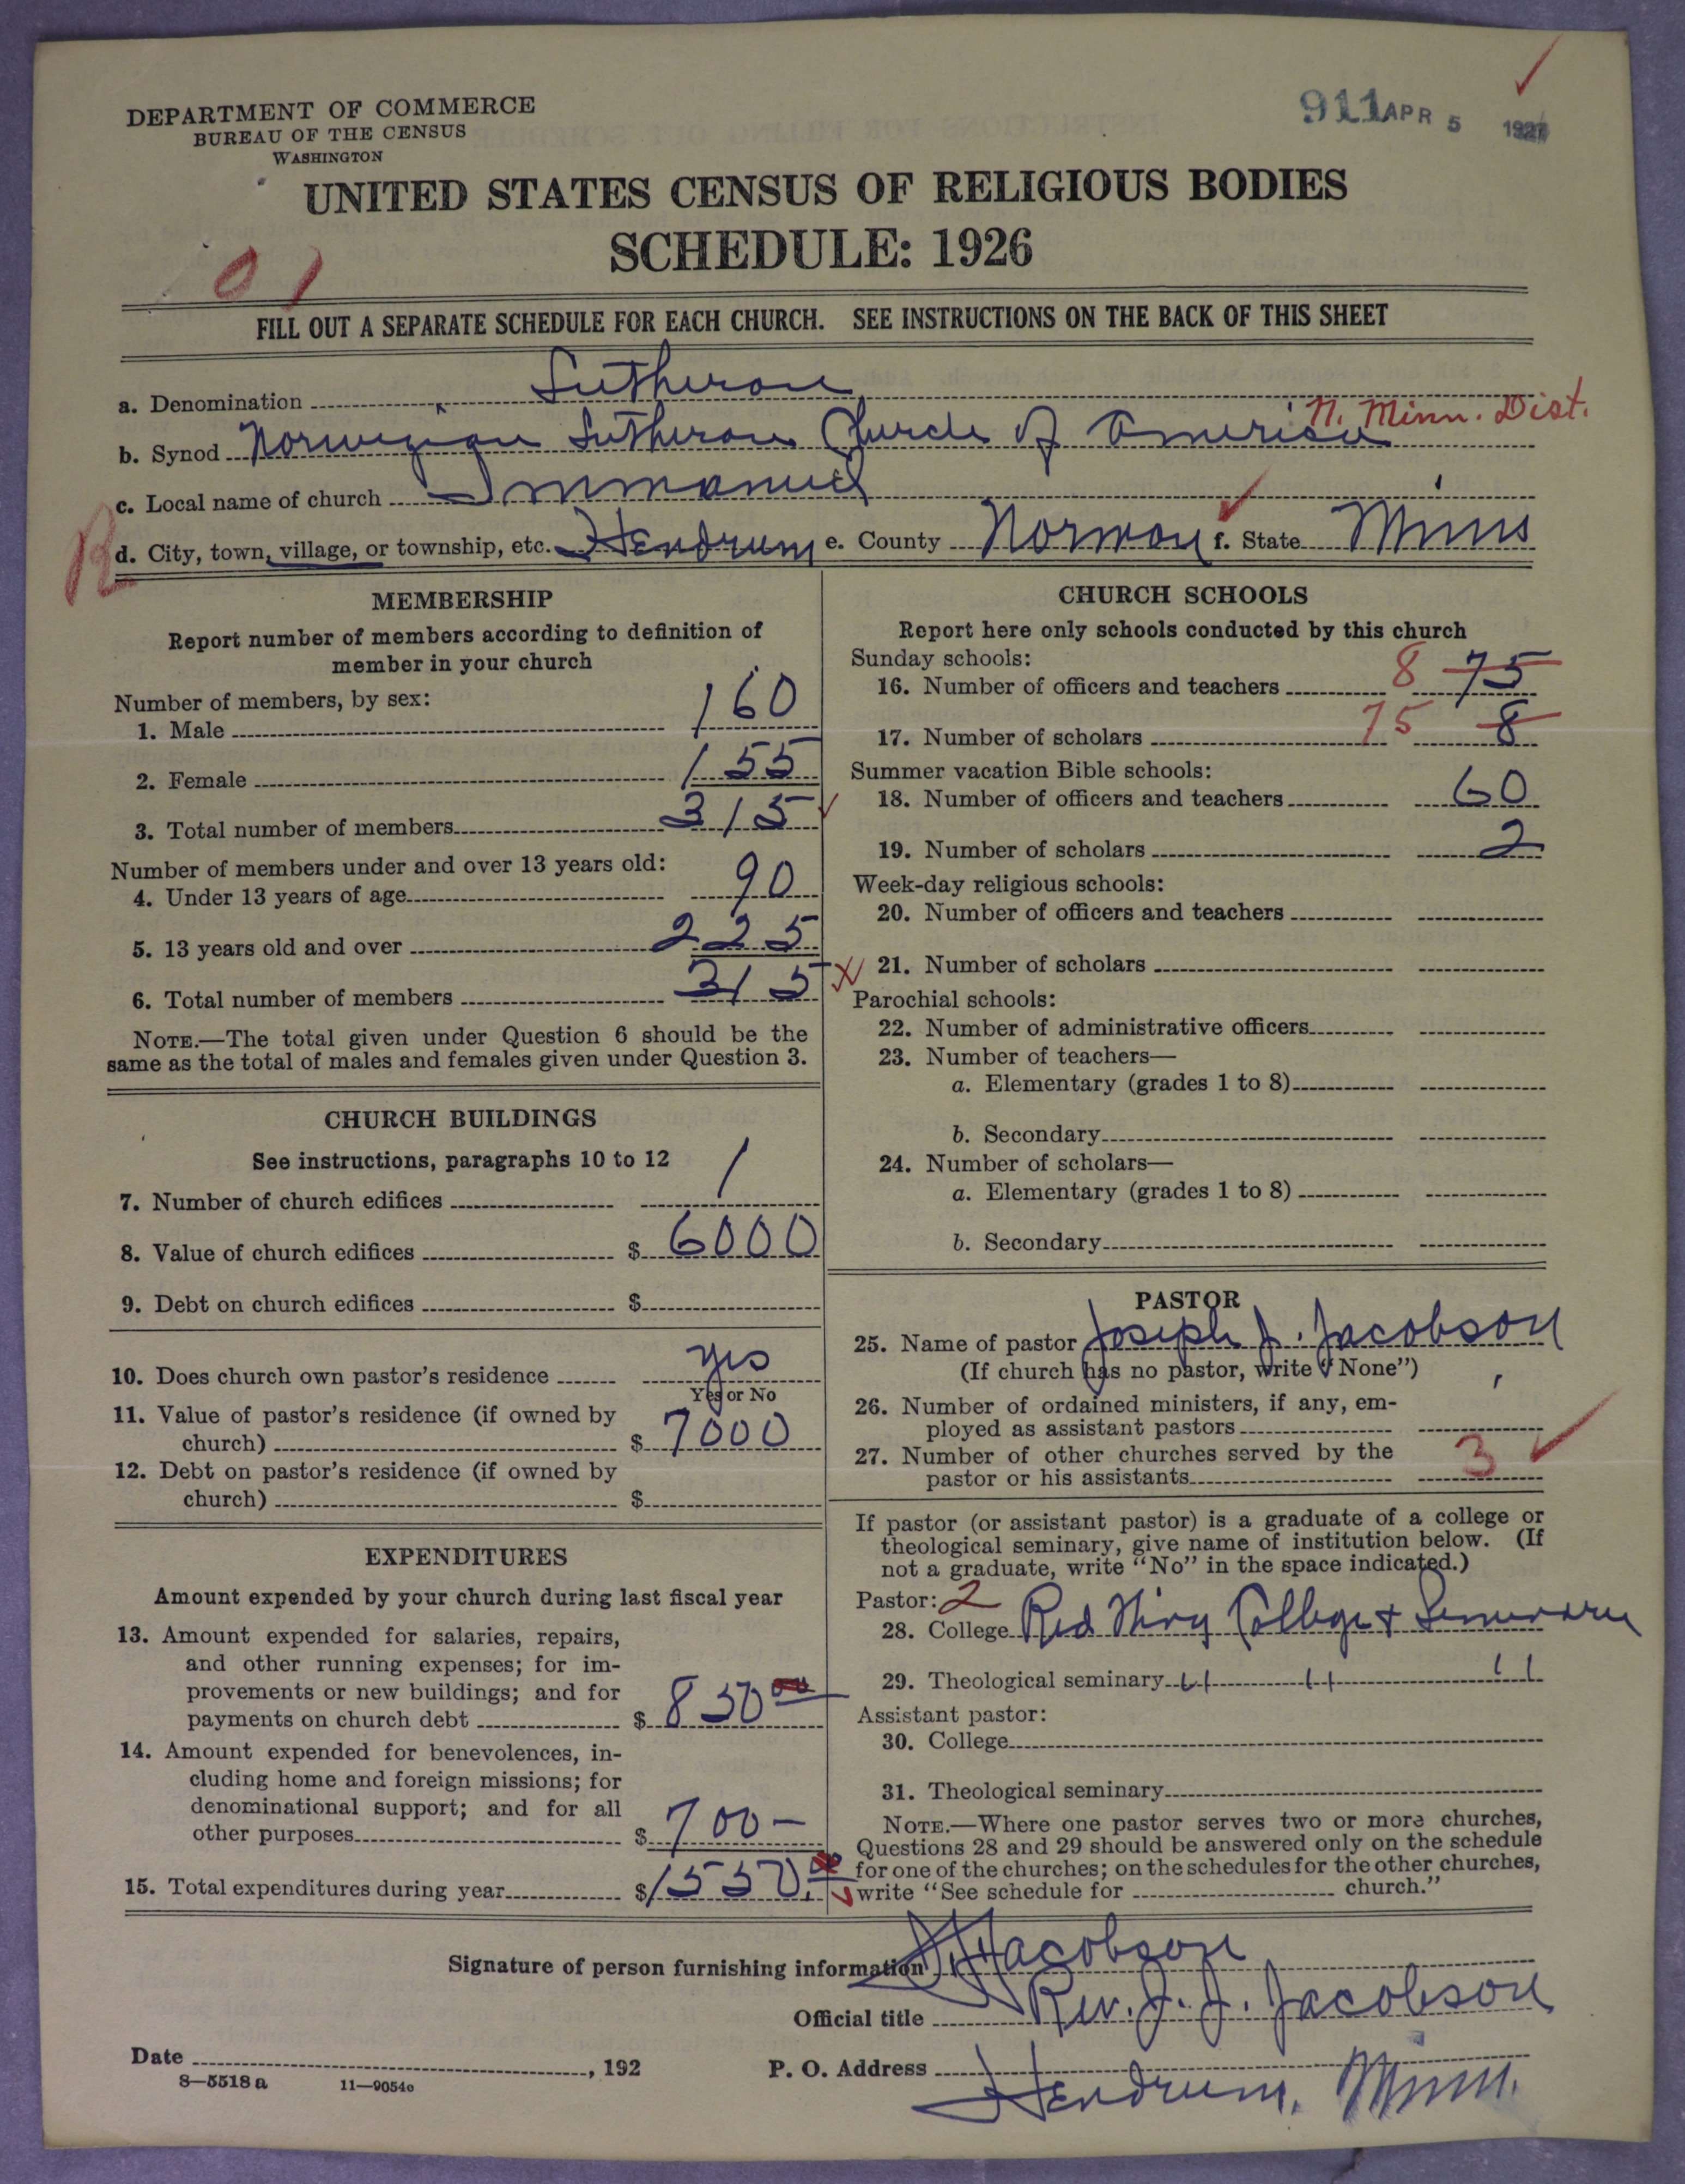 911 APR 5 1927
DEPARTMENT OF COMMERCE
BUREAU OF THE CENSUS
WASHINGTON
UNITED STATES CENSUS OF RELIGIOUS BODIES
SCHEDULE: 1926
01
FILL OUT A SEPARATE SCHEDULE FOR EACH CHURCH. SEE INSTRUCTIONS ON THE BACK OF THIS SHEET
a. Denomination Lutheran
N. Minn. Dist.
b. Synod Norwegian Lutheran Church of America
c. Local name of church Immanuel
R
d. City, town, village, or township, etc. Hendrum e. County Norman f. State Minn
MEMBERSHIP
Report number of members according to definition of
member in your church
Number of members, by sex:
1. Male 160
2. Female 155
3. Total number of members 315
Number of members under and over 13 years old:
4. Under 13 years of age 90
5. 13 years old and over 225
6. Total number of members 315
NOTE.—The total given under Question 6 should be the
same as the total of males and females given under Question 3.
CHURCH BUILDINGS
See instructions, paragraphs 10 to 12
7. Number of church edifices 1
8. Value of church edifices $ 6000
9. Debt on church edifices $
10. Does church own pastor's residence yes
Yes or No
11. Value of pastor's residence (if owned by
church) $ 7000
12. Debt on pastor's residence (if owned by
church) $
EXPENDITURES
Amount expended by your church during last fiscal year
13. Amount expended for salaries, repairs,
and other running expenses; for im-
provements or new buildings; and for
payments on church debt $ 850 00
14. Amount expended for benevolences, in-
cluding home and foreign missions; for
denominational support; and for all
other purposes $ 700 —
15. Total expenditures during year $ 1550.00
CHURCH SCHOOLS
Report here only schools conducted by this church
Sunday schools:
16. Number of officers and teachers 8 75
17. Number of scholars 75 8
Summer vacation Bible schools:
18. Number of officers and teachers 60
19. Number of scholars 2
Week-day religious schools:
20. Number of officers and teachers
21. Number of scholars
Parochial schools:
22. Number of administrative officers
23. Number of teachers—
a. Elementary (grades 1 to 8)
b. Secondary
24. Number of scholars—
a. Elementary (grades 1 to 8)
b. Secondary
PASTOR
25. Name of pastor Joseph J. Jacobson
(If church has no pastor, write "None")
26. Number of ordained ministers, if any, em-
ployed as assistant pastors
27. Number of other churches served by the
pastor or his assistants 3
If pastor (or assistant pastor) is a graduate of a college or
theological seminary, give name of institution below. (If
not a graduate, write "No" in the space indicated.)
Pastor: 2
28. College Red Wing College & Seminary
29. Theological seminary " " "
Assistant pastor:
30. College
31. Theological seminary
NOTE.—Where one pastor serves two or more churches,
Questions 28 and 29 should be answered only on the schedule
for one of the churches; on the schedules for the other churches,
write "See schedule for church."
Signature of person furnishing information J. J. Jacobson
Official title Rev. J. J. Jacobson
Date , 192
P. O. Address Hendrum, Minn.
8—5518 a 11—9054c